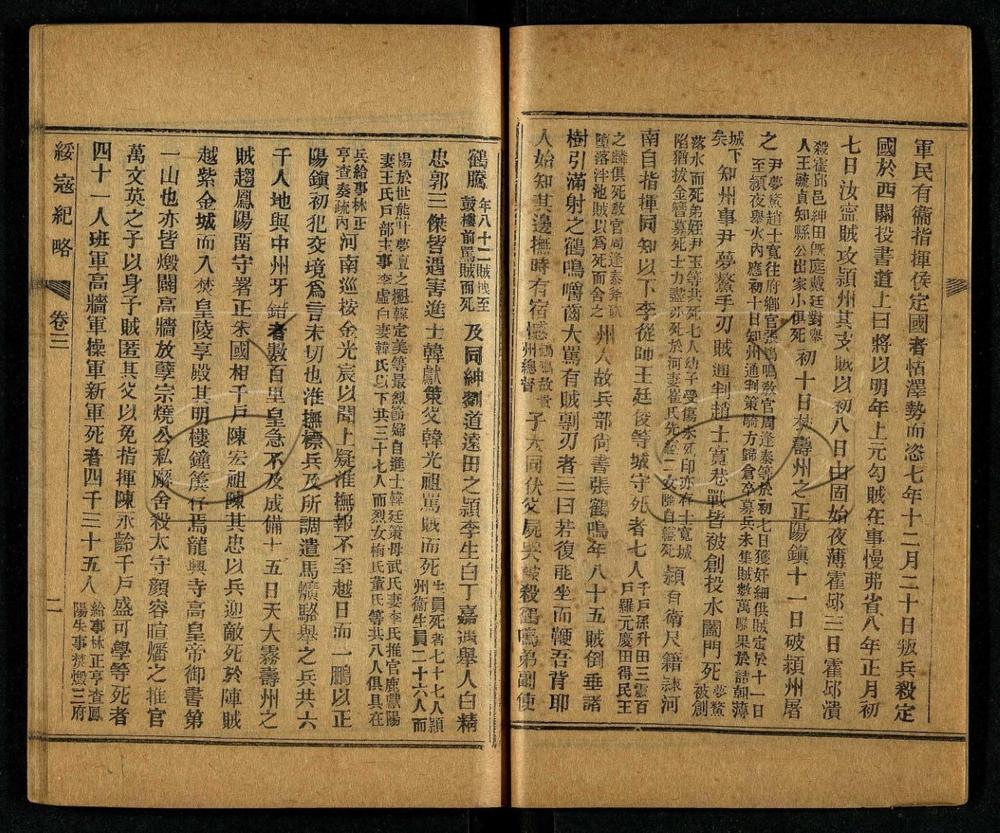 軍民有衞指揮侯定國者怙澤勢而恣七年十二月二十日叛兵殺定
國於西關投書道上曰將以明年上元勾賊在事慢弗省八年正月初
七日汝寗賊攻潁州其支賊以初八日由固始夜薄霍邱三日霍邱潰
殺霍邱邑紳田旣庭戴廷對舉
人王毓貞知縣公出家小俱死
初十日李壽州之正陽鎮十一日破潁州屠
之
尹夢鰲趙士寬往府鄉官張鶴鳴敎官周逢泰等於初七日獲奸細供賊定於十一日
至潁夜舉火內應初十日知州通判策騎方歸倉卒募兵未集賊數萬驟果於詰朝薄
城下
矣
知州事尹夢鰲手刃賊通判趙士寬巷戰皆被創投水闔門死
夢鰲
被創
落水而死弟姪尹玉等共死七人幼子受傷未死印亦存士寬城
陷猶拔金簪募死士力盡亦死於河妻崔氏先縊二女隨自縊死
潁自衞尺籍隸河
南自指揮同知以下李從師王廷俊等城守死者七人
千戶孫升田三震百
戶羅元慶田得民王
之麟俱死敎官周逢泰斧
墮落泮池賊以爲死而舍之
州人故兵部尚書張鶴鳴年八十五賊倒垂諸
樹引滿射之鶴鳴嚼齒大罵有賊剚刃者三曰若復能坐而鞭吾背耶
人始知其邊撫時有宿憾
鶴鳴故貴
州總督
子大同伏父屍哭賊殺鶴鳴弟副使
鶴騰
年八十二賊拽至
鼓樓前罵賊而死
及同紳劉道遠田之潁李生白丁嘉遇舉人白精
忠郭三傑皆遇害進士韓獻策父韓光祖罵賊而死
生員死者七十七人潁
州衞生員二十六人而
韓定美等最烈節婦自進士韓廷策母武氏妻李氏推官鹿獻陽
妻王氏戶部主事李虛白妻韓氏以下共三十七人而烈女梅氏董氏等共八人俱具在
兵給事林正
亨查奏疏內
河南巡按金光宸以聞上疑淮撫報不至越日而一鵬以正
陽鎮初犯交境爲言未切也淮撫標兵及所調遣馬爌駱舉之兵共六
千人地與中州牙錯者數百里皇急不及成備十五日天大霧壽州之
賊趨鳳陽留守署正朱國相千戶陳宏祖陳其忠以兵迎敵死於陣賊
越紫金城而入焚皇陵享殿其明樓鐘簴仔焉龍興寺高皇帝御書第
一山也亦皆燬闢高牆放孽宗燒公私廨舍殺太守顏容暄燔之推官
萬文英之子以身子賊匿其父以免指揮陳永齡千戶盛可學等死者
四十一人班軍高牆軍操軍新軍死者四千三十五八
給事林正亨查鳳
陽失事焚燬三府
綏寇紀略
卷三
二